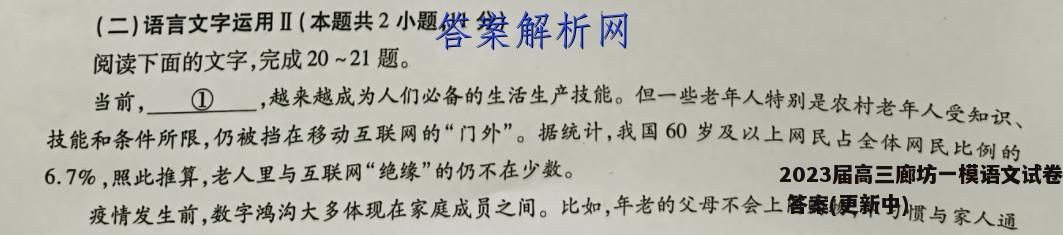 (二)语言文字运用Ⅱ(本题共2小题,4分)
答案解析网
阅读下面的文字,完成20~21题。
当前,①,越来越成为人们必备的生活生产技能。但一些老年人特别是农村老年人受知识、
技能和条件所限,仍被挡在移动互联网的“门外”。据统计,我国60岁及以上网民占全体网民比例的
6.7%,照此推算,老人里与互联网“绝缘”的仍不在少数。
2023届高三廊坊一模语文试卷
答案(更新中)
疫情发生前,数字鸿沟大多体现在家庭成员之间。比如,年老的父母不会上 惯与家人通